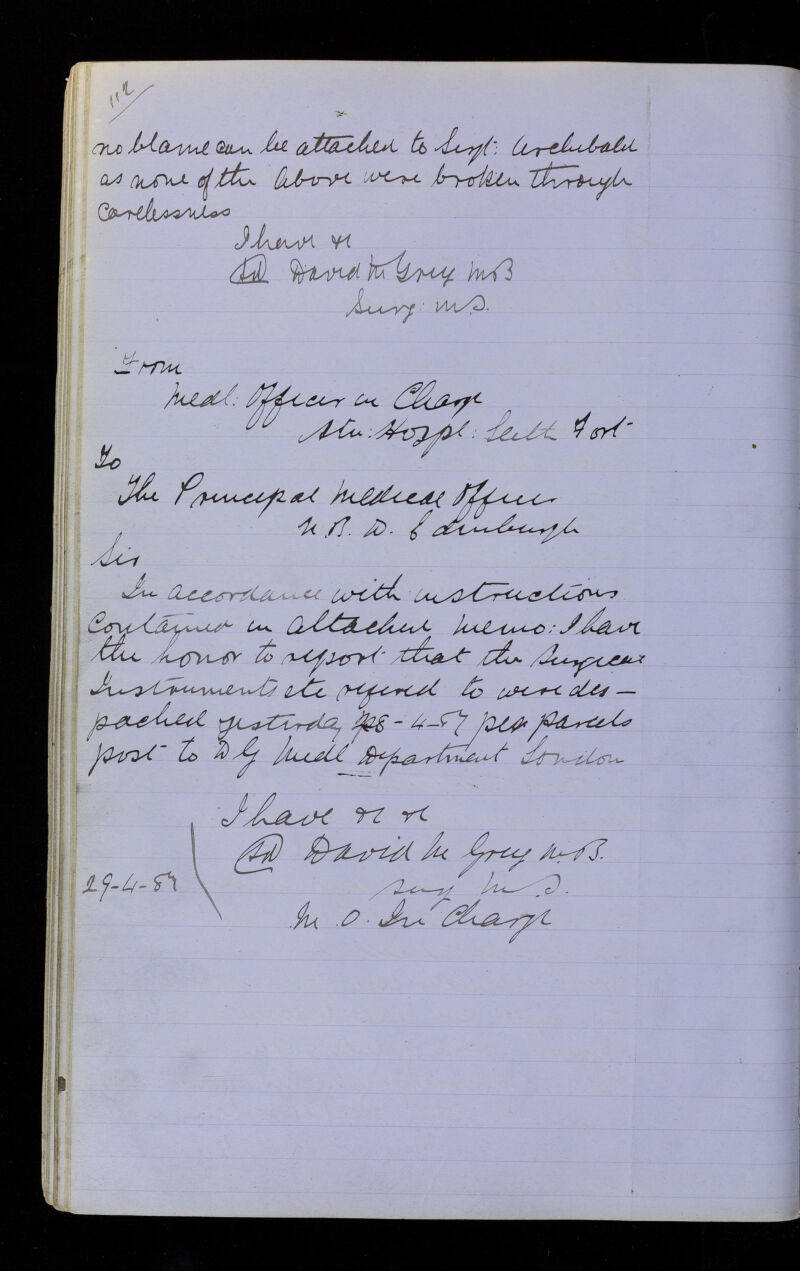 112
no blame can be attached to Sergt: Archibald
as none of the above were broken through
carelessness
I have &c
Sd David M Greig M.B
Surg: M.S.
From
Medl: Officer in Charge
Stn: Hospl: Leith Fort
To
The Principal Medical Officer
N.B. D. Edinburgh
Sir
In accordance with instructions
contained in attached Memo: I have
the honor to report that the Surgical
Instruments etc refered to were des-
pached yesterday 28-4-87 per parcels
post to D G Medl Department London
I have &c &c
Sd David M Greig M.B.
29-4-87
Surg M.S.
M. O. In Charge